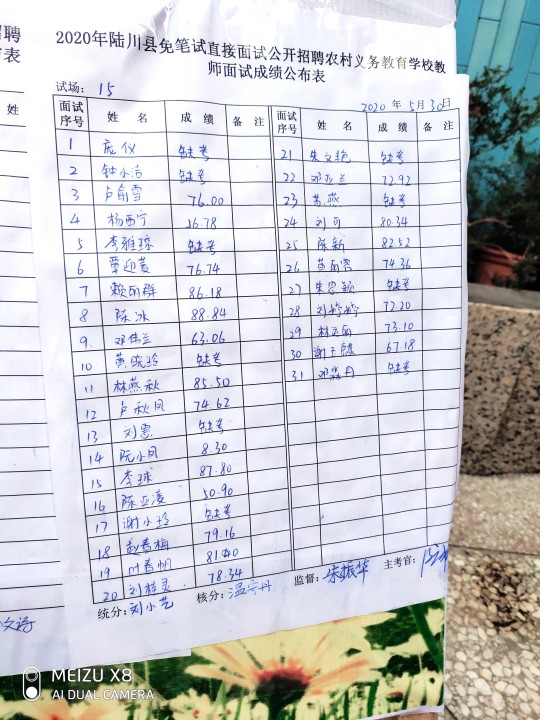 招聘
布表
2020年陆川县免笔试直接面试公开招聘农村义务教育学校教
师面试成绩公布表
试场: 15
2020年5月30日
面试序号 姓名 成绩 备注
1 庞仪 缺考
2 钟小洁 缺考
3 卢俞雪 76.00
4 杨西宁 26.78
5 李雅琼 缺考
6 覃迎芰 76.74
7 赖丽群 86.18
8 陈冰 88.84
9 邓伟兰 63.06
10 黄晓玲 缺考
11 林燕秋 85.50
12 卢秋凤 74.62
13 刘恩 缺考
14 阮小凤 8.30
15 李球 87.80
16 陈亚凌 50.90
17 谢小玲 缺考
18 赵春梅 79.16
19 叶春帆 81.40
20 刘桂灵 78.34
面试序号 姓名 成绩 备注
21 朱文艳 缺考
22 邓亚兰 72.92
23 苏燕 缺考
24 刘可 80.34
25 陈新 82.52
26 黄丽容 74.36
27 朱思颖 缺考
28 刘婷婷 72.20
29 林 73.10
30 谢 67.18
31 邓 月 缺考
统分: 刘小艺 核分: 温宁丹 监督: 宋振华 主考官:
MEIZU X8
AI DUAL CAMERA